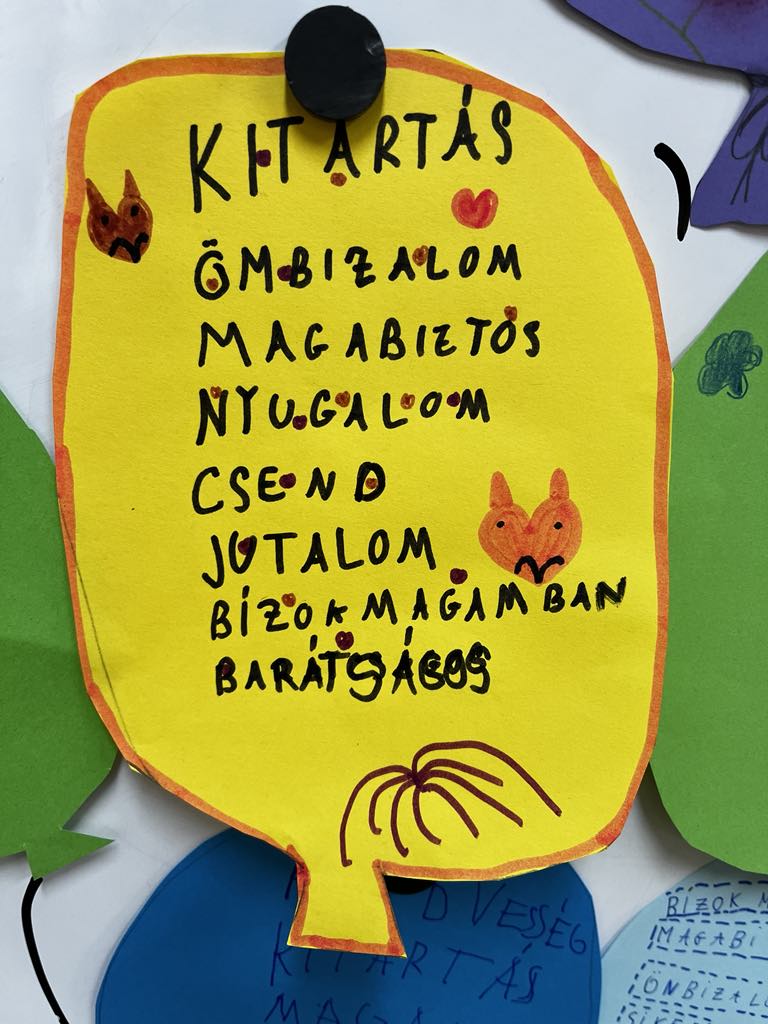 KITARTÁS
ÖMBIZALOM
MAGABIZTOS
NYUGALOM
CSEND
JUTALOM
BÍZOK MAGAMBAN
BARÁTSÁGOS
KITARTÁS
BÍZOK
MAGABI
ÖNBIZAL